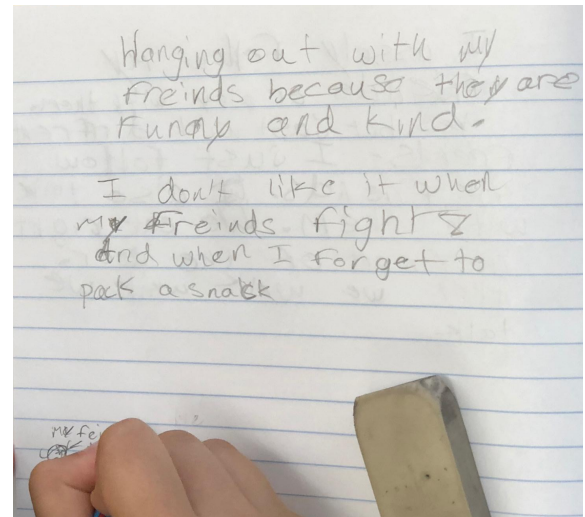 Hanging out with my
freinds because they are
Funny and kind.
I don't like it when
my Freinds fight &
And when I forget to
pack a snack
my fei